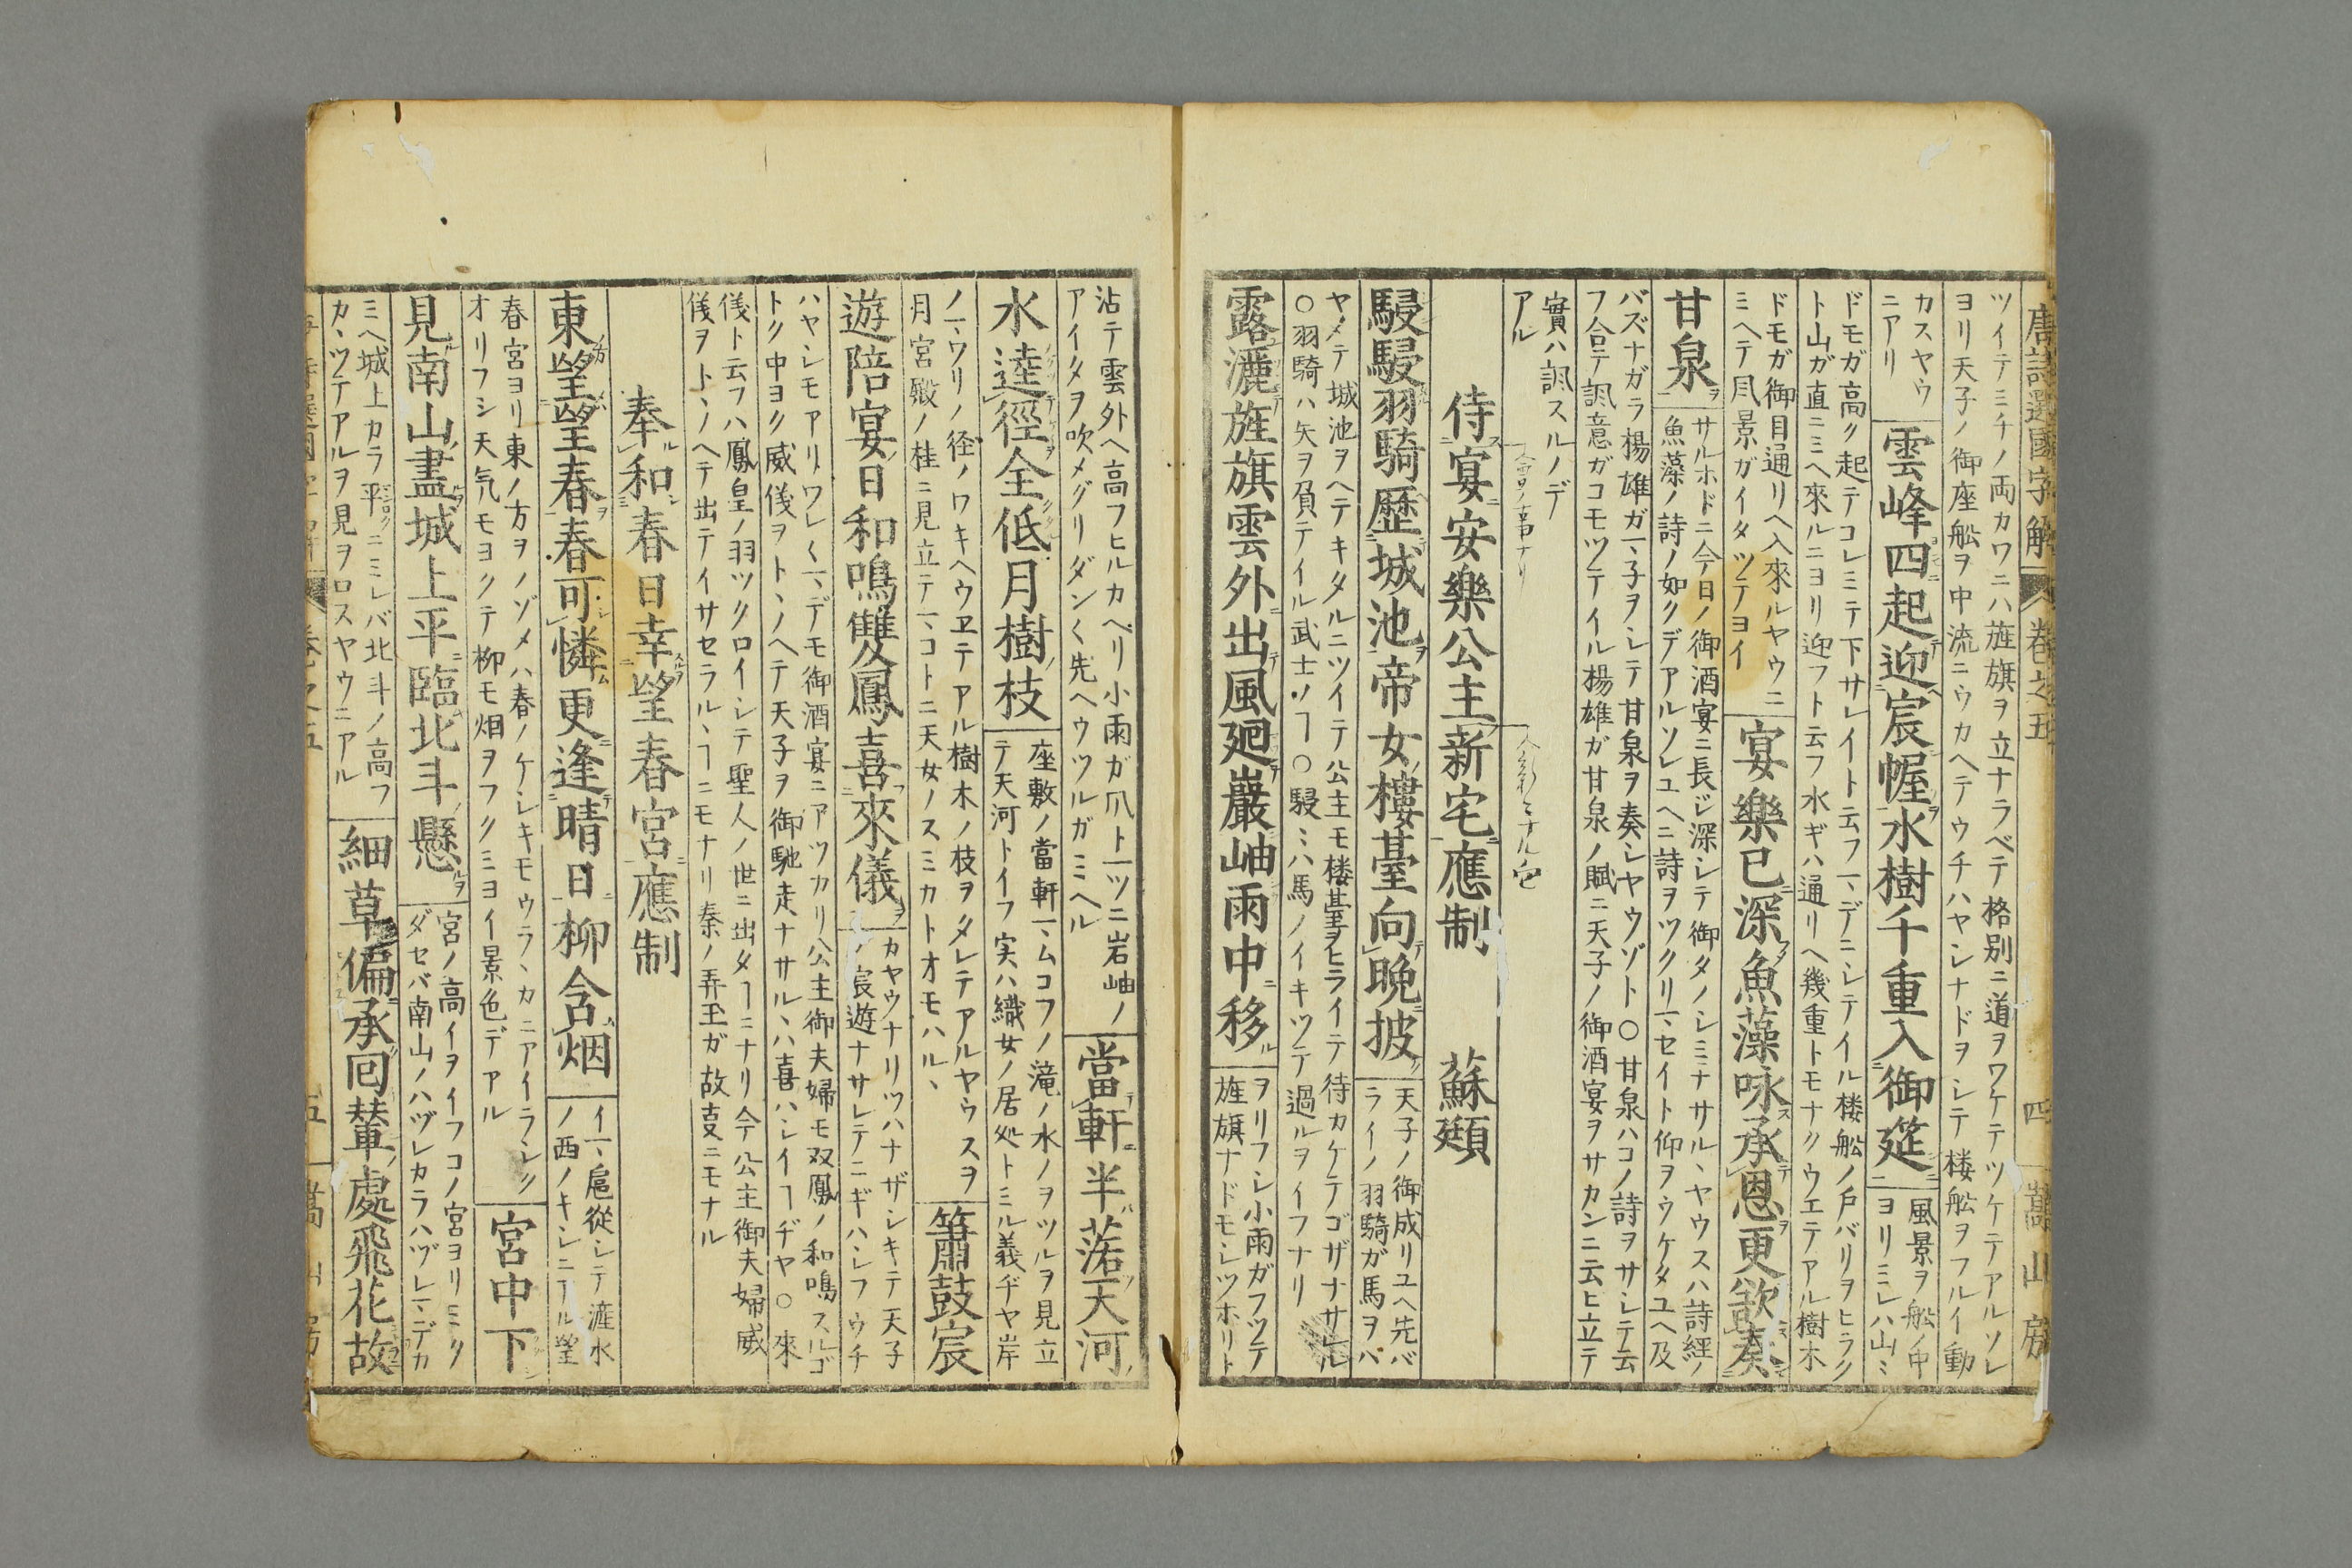 唐詩選國字解 巻之五 四 嵩山房
ツイテミチノ両カワニハ旌旗ヲ立ナラベテ格別ニ道ヲワケテツケテアルソレ
ヨリ天子ノ御座舩ヲ中流ニウカヘテウチハヤシナドヲシテ楼舩ヲフルイ動
カスヤウ
ニアリ
雲峰四起迎宸幄水樹千重入御筵
風景ヲ舩ノ中
ヨリミレハ山ミ
ドモガ高ク起テコレミテ下サレイト云フ一、デニシテイル楼舩ノ戸バリヲヒラク
ト山ガ直ニミヘ來ルニヨリ迎フト云フ水ギハ通リヘ幾重トモナクウエテアル樹木
ドモガ御目通リヘ入來ルヤウニ
ミヘテ風景ガイタツテヨイ
宴樂已深魚藻咏承恩更欲奏
甘泉
サルホドニ今日ノ御酒宴ニ長ジ深シテ御タノシミナサル、ヤウスハ詩經ノ
魚藻ノ詩ノ如クデアルソレユヘニ詩ヲツクリ一、セイト仰ヲウケタユヘ及
バズナガラ楊雄ガ一、子ヲシテ甘泉ヲ奏シヤウゾト○甘泉ハコノ詩ヲサシテ云
フ合テ諷意ガコモツテイル楊雄ガ甘泉ノ賦ニ天子ノ御酒宴ヲサカンニ云ヒ立テ
實ハ諷スルノデ
アル
侍宴安樂公主新宅應制 蘇頲
駸駸羽騎歷城池帝女樓臺向晚披
天子ノ御成リユヘ先バ
ライノ羽騎ガ馬ヲバ
ヤメテ城池ヲヘテキタルニツイテ公主モ楼䑓ヲヒライテ待カケテゴザナサルル
○羽騎ハ矢ヲ負テイル武士ノヿ○駸ミハ馬ノイキツテ過ルヲイフナリ
露灑旌旗雲外出風廻巖岫雨中移
ヲリフシ小雨ガフツテ
旌旗ナドモシツホリト
沾テ雲外ヘ高フヒルカヘリ小雨ガ爪ト一ツニ岩岫ノ
アイタヲ吹メグリダンく先ヘウツルガミヘル
當軒半落天河
水遶徑全低月樹枝
座敷ノ當軒一、ムコフノ滝ノ水ノヲツルヲ見立
テ天河トイフ実ハ織女ノ居処トミル義ヂヤ岸
ノ一、ワリノ径ノワキヘウヱテアル樹木ノ枝ヲタレテアルヤウスヲ
月宮殿ノ桂ニ見立テ一、コトニ天女ノスミカトオモハル、
簫鼓宸
遊陪宴日和鳴雙鳳喜來儀
カヤウナリツハナザシキテ天子
ノ宸遊ナサレテニギハシフウチ
ハヤシモアリワレく一、デモ御酒宴ニアツカリ公主御夫婦モ双鳳ノ和鳴スルゴ
トク中ヨク威儀ヲト、ノヘテ天子ヲ御馳走ナサル、ハ喜ハシイヿヂヤ○來
儀ト云フハ鳳皇ノ羽ツクロイシテ聖人ノ世ニ出タヿニナリ今公主御夫婦威
儀ヲト、ノヘテ出テイサセラル、ヿニモナリ秦ノ弄玉ガ故事ニモナル
奉和春日幸望春宮應制
東望望春春可憐更逢晴日柳含烟
イ一、扈從シテ滻水
ノ西ノキシニアル望
春宮ヨリ東ノ方ヲノゾメハ春ノケシキモウラ、カニアイラシク
オリフシ天気モヨクテ柳モ烟ヲフクミヨイ景色デアル
宮中下
見南山盡城上平臨北斗懸
宮ノ高イヲイフコノ宮ヨリミク
ダセバ南山ノハヅレカラハヅレ一、デカ
ミヘ城上カラ平ニミレバ北斗ノ高フ
カ、ツテアルヲ見ヲロスヤウニアル
細草偏承回輦處飛花故
巻之五 五 嵩山房